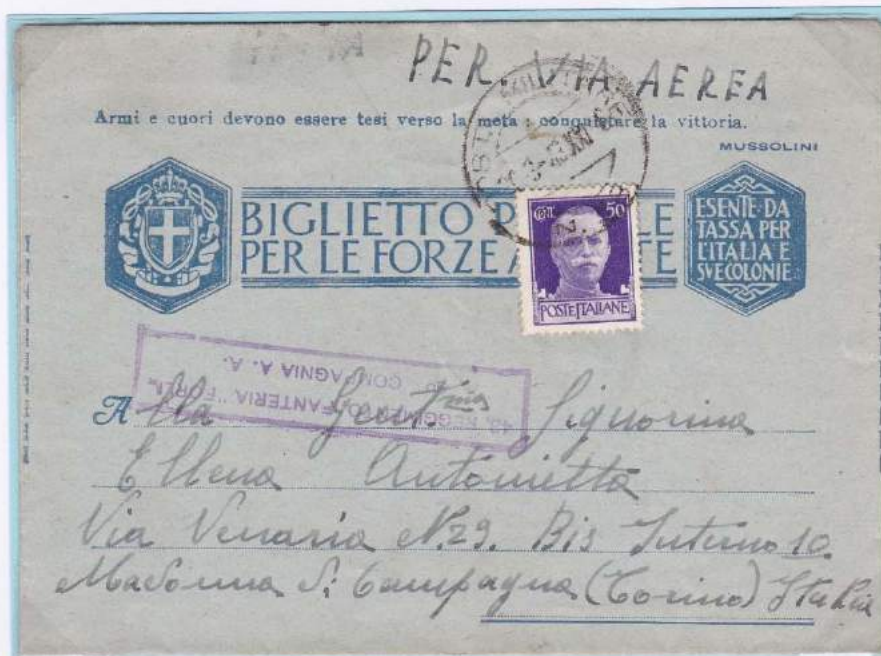 PER VIA AEREA
Armi e cuori devono essere tesi verso la meta: conquistare la vittoria.
MUSSOLINI
BIGLIETTO P LE
PER LE FORZE A TE
ESENTE·DA
TASSA PER
L'ITALIA E
SVE COLONIE
Cent. 50
POSTE ITALIANE
43. REGGI FANTERIA "FORLI"
COMPAGNIA A. A.
A lla Gent.ma Signorina
Ellena Antonietta
Via Venaria N. 29. Bis Interno 10.
Madonna di Campagna (Torino) Italia